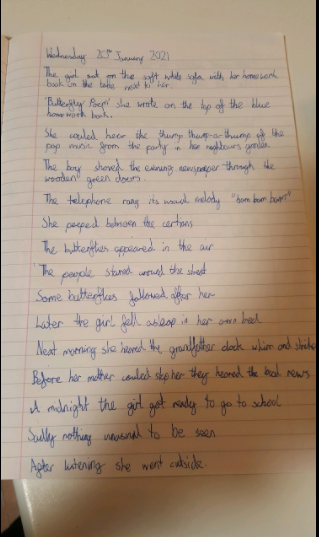 Wednesday 20th January 2021
The girl sat on the soft white sofa with her homework
book on the table next to her.
"Butterfly Poem" she wrote on the top of the blue
homework book.
She could hear the thump thump-a-thump of the
pop music from the party in her neighbours garden.
The boy shoved the evening newspaper through the
wooden green door.
The telephone rang its usual melody "bom bom bom"
She peeped between the certans
The butterflies appeared in the air
The people stared around the
Some butterflies followed after her
Later the girl fell asleep in her own bed
Next morning she heared the grandfather clock whirr and strike
Before her mother could stop her they heared the bad news
A midnight the girl got ready to go to school
Sadly nothing unusual to be seen
After listening she went outside.